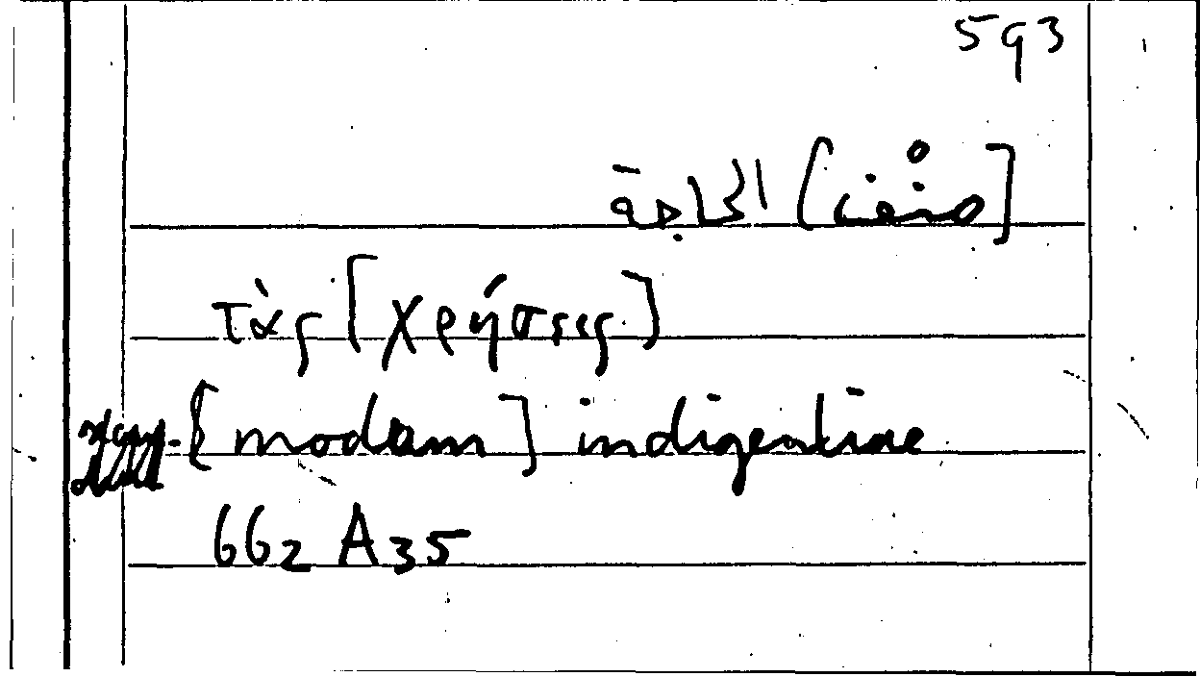 593
[صنف] الحاجة
τὰς [χρήσεις]
[modam] indigentiae
662 A35